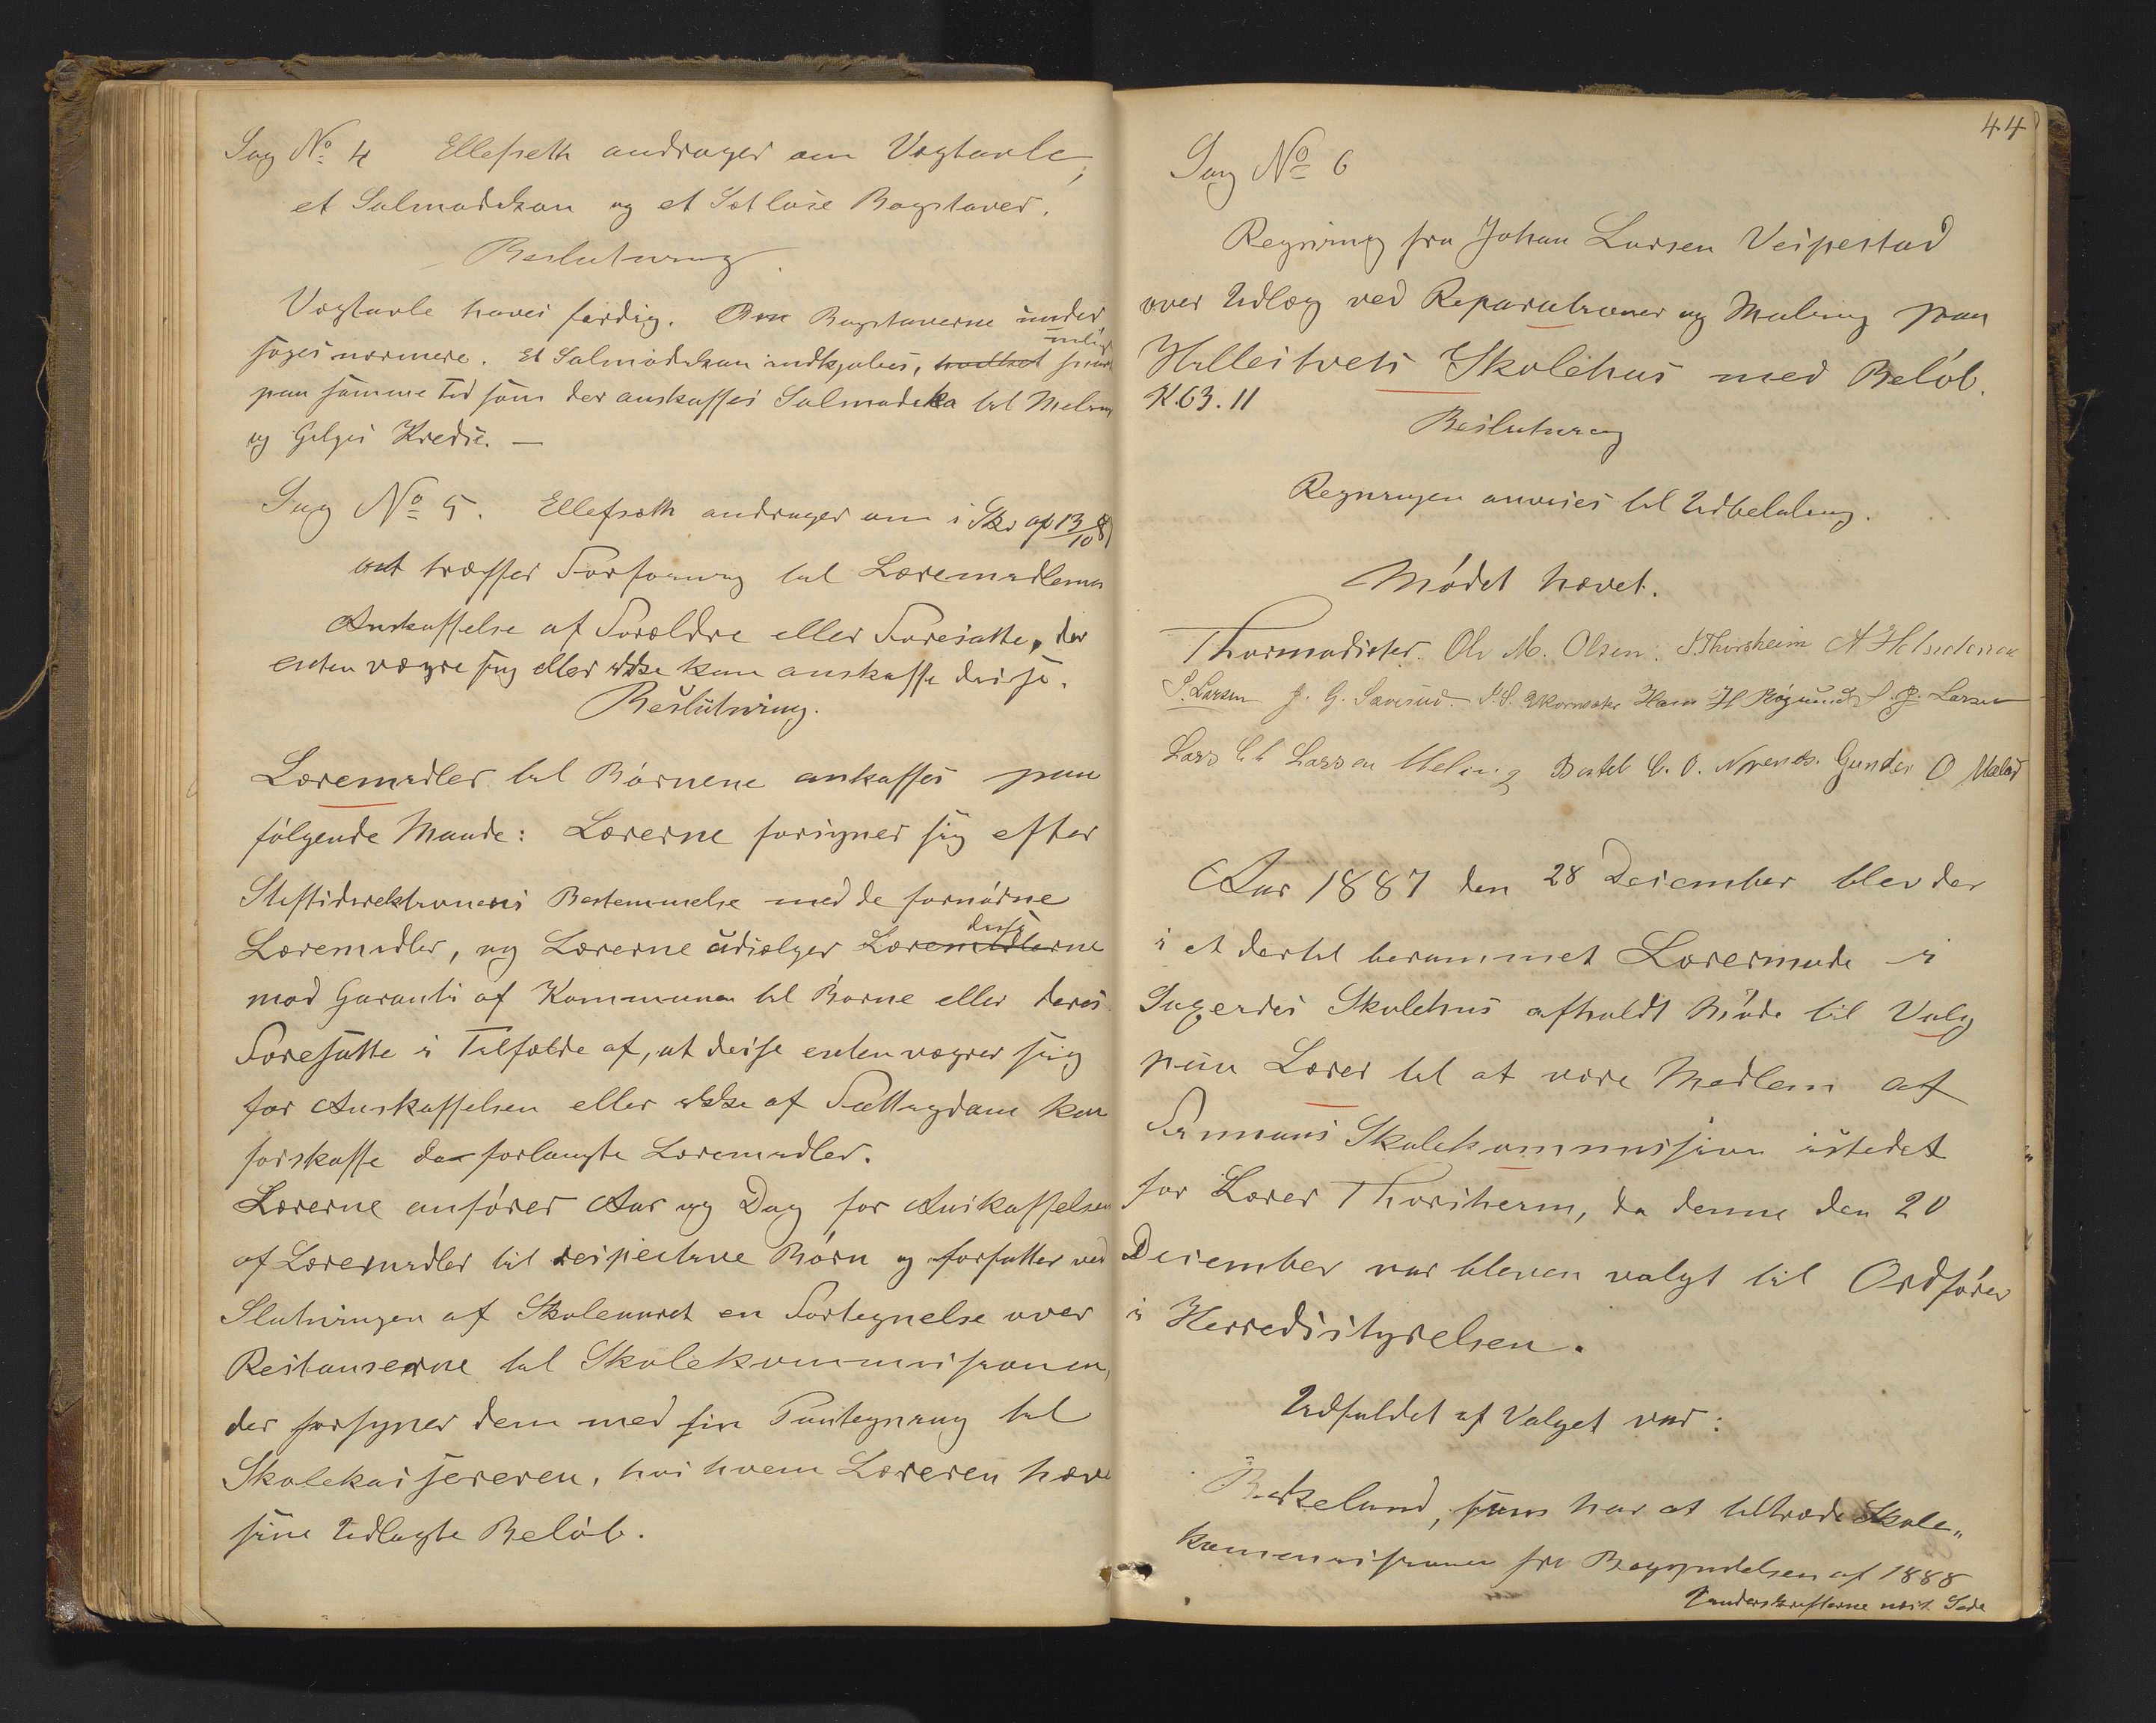 Sag No 4 Ellefseth andrager om Vægtavle,
et Salmodikon og et Sæt løse Bogstaver.
Beslutning.
Vægtavle haves færdig. Om Bogstaverne under
søges nærmere. Et Salmodikon indkjøbes,
paa samme Tid som der anskaffes Salmodika til Meling
og Gelges Kredse. —
Sag No 5. Ellefseth andrager om i Skr af 13/10 87
at træffes Forføining til Læremidlernes
Anskaffelse af Forældre eller Foresatte, der
enten vægre sig eller ikke kan anskaffe disse.
Beslutning.
Læremidler til Børnene anskaffes paa
følgende Maade: Lærerne forsyner sig efter
Stiftsdirektionens Bestemmelse med de fornødne
disse
Læremidler, og Lærerne udsælger Læremidlerne
mod Garanti af Kommunen til Børne eller deres
Foresatte i Tilfælde af, at disse enten vægrer sig
for Anskaffelsen eller ikke af Fattigdom kan
forskaffe de forlangte Læremidler.
Lærerne anfører Aar og Dag for Anskaffelsen
af Læremidler til respective Børn og forfatter ved
Slutningen af Skoleaaret en Fortegnelse over
Restanserne til Skolekommissionen,
der forsyner dem med sin Paategning til
Skolekasereren, hos hvem Læreren hæve
sine Udlagte Beløb.
44
Sag No 6
Regning fra Johan Larsen Veipestad
over Udlæg ved Reparationer og Maling paa
Halleitvets Skolehus med Beløb.
K. 63. 11
Beslutning
Regningen anvises til Udbetaling.
Mødet hævet.
Thormodsæter. Ole M. Olsen. S. Thorsheim
S. Larsen J. G. Sævesud. Hans H Røgnund S. J. Larsen
Lars Larsen Meling Bertel C. O. Gunder O Mælad
Aar 1887 den 28 December blev der
i et dertil berammet Lærermøde i
Skolehus afholdt Møde til Valg
paa Lærer til at være Medlem af
Finnaas Skolekommission istedet
for Lærer Thorsheim, da denne den 20
December var bleven valgt til Ordfører
i Herredsstyrelsen.
Udfaldet af Valget var:
Birkeland, som har at tiltræde Skole„
kommissionen fra Begyndelsen af 1888
Underskrifterne næste Side